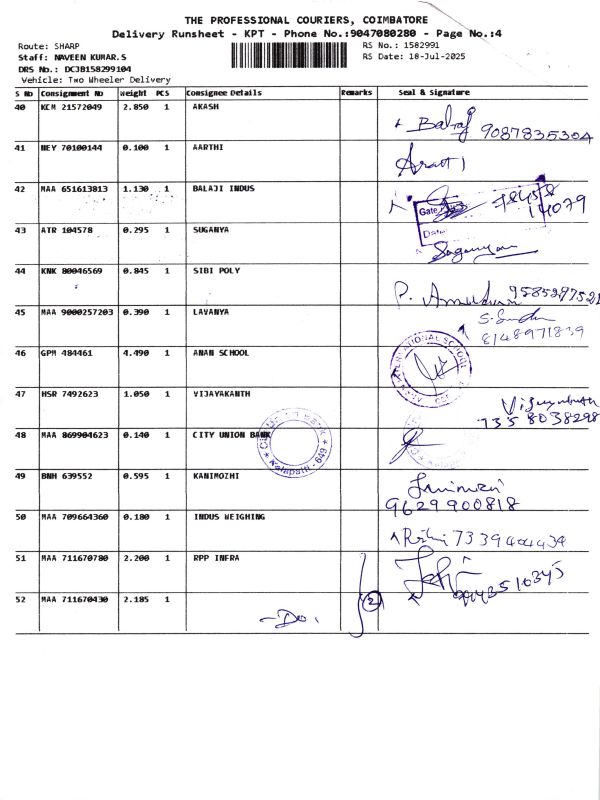 THE PROFESSIONAL COURIERS, COIMBATORE
Delivery Runsheet - KPT - Phone No.:9047080280 - Page No.:4
Route: SHARP
RS No.: 1582991
Staff: NAVEEN KUMAR.S
RS Date: 18-Jul-2025
DRS No.: DCJB158299104
Vehicle: Two Wheeler Delivery
S No Consignment No Weight PCS Consignee Details Remarks Seal & Signature
40 KCM 21572049 2.850 1 AKASH
Balraj 9087835304
41 NEY 70100144 0.100 1 AARTHI
Aarti
42 MAA 651613813 1.130 1 BALAJI INDUS
Gate
14079
Date
43 ATR 104578 0.295 1 SUGANYA
Suganya
44 KNK 80046569 0.845 1 SIBI POLY
P. 9585297521
45 MAA 9000257203 0.390 1 LAVANYA
8148971839
46 GPM 484461 4.490 1 ANAN SCHOOL
INTERNATIONAL SCHOOL
47 HSR 7492623 1.050 1 VIJAYAKANTH
7358038298
48 MAA 869904623 0.140 1 CITY UNION BANK
Kalapatti - 649
49 BNH 639552 0.595 1 KANIMOZHI
9629900818
50 MAA 709664360 0.180 1 INDUS WEIGHING
7339404434
51 MAA 711670780 2.200 1 RPP INFRA
52 MAA 711670430 2.185 1
- Do.
2